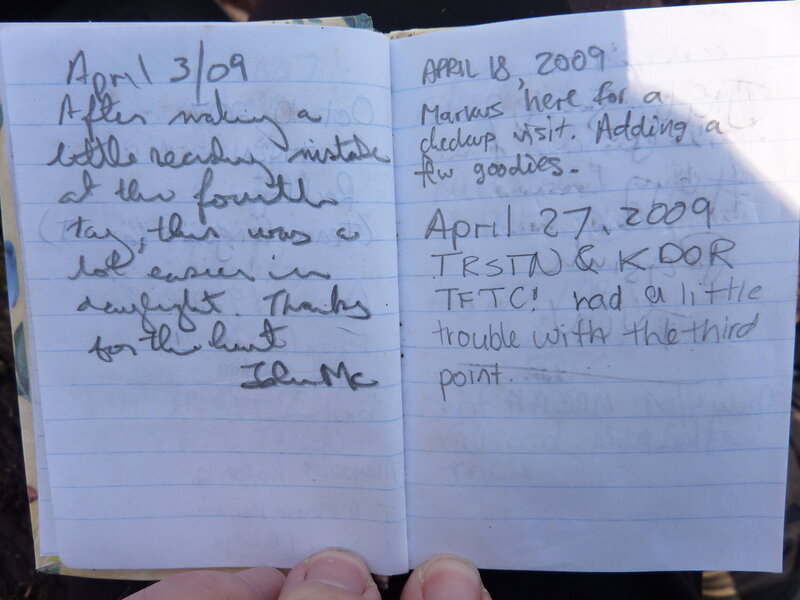 April 3/09
After making a
little reading mistake
at the fourth
tag, this was a
lot easier in
daylight. Thanks
for the hunt
John Mc
APRIL 18, 2009
Markus here for a
checkup visit. Adding a
few goodies.
April 27, 2009
TRSTN & KDOR
TFTC! had a little
trouble with the third
point.